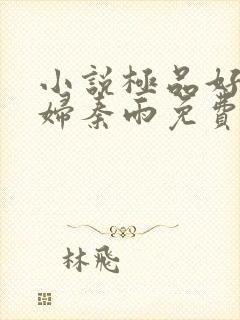 小説極品好
婦秦雨免費
林飛